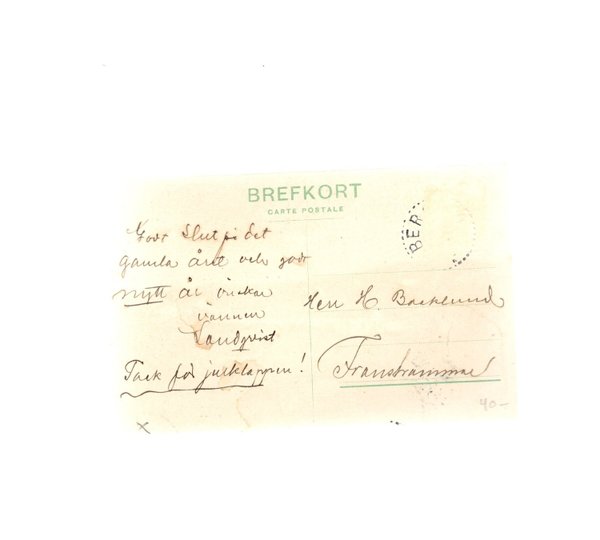 BREFKORT
CARTE POSTALE
BER
Godt Slut på det
gamla året och godt
nytt år önskar
vännen
Landqvist
Tack för julklappen!
Herr H. Backlund
40-
x